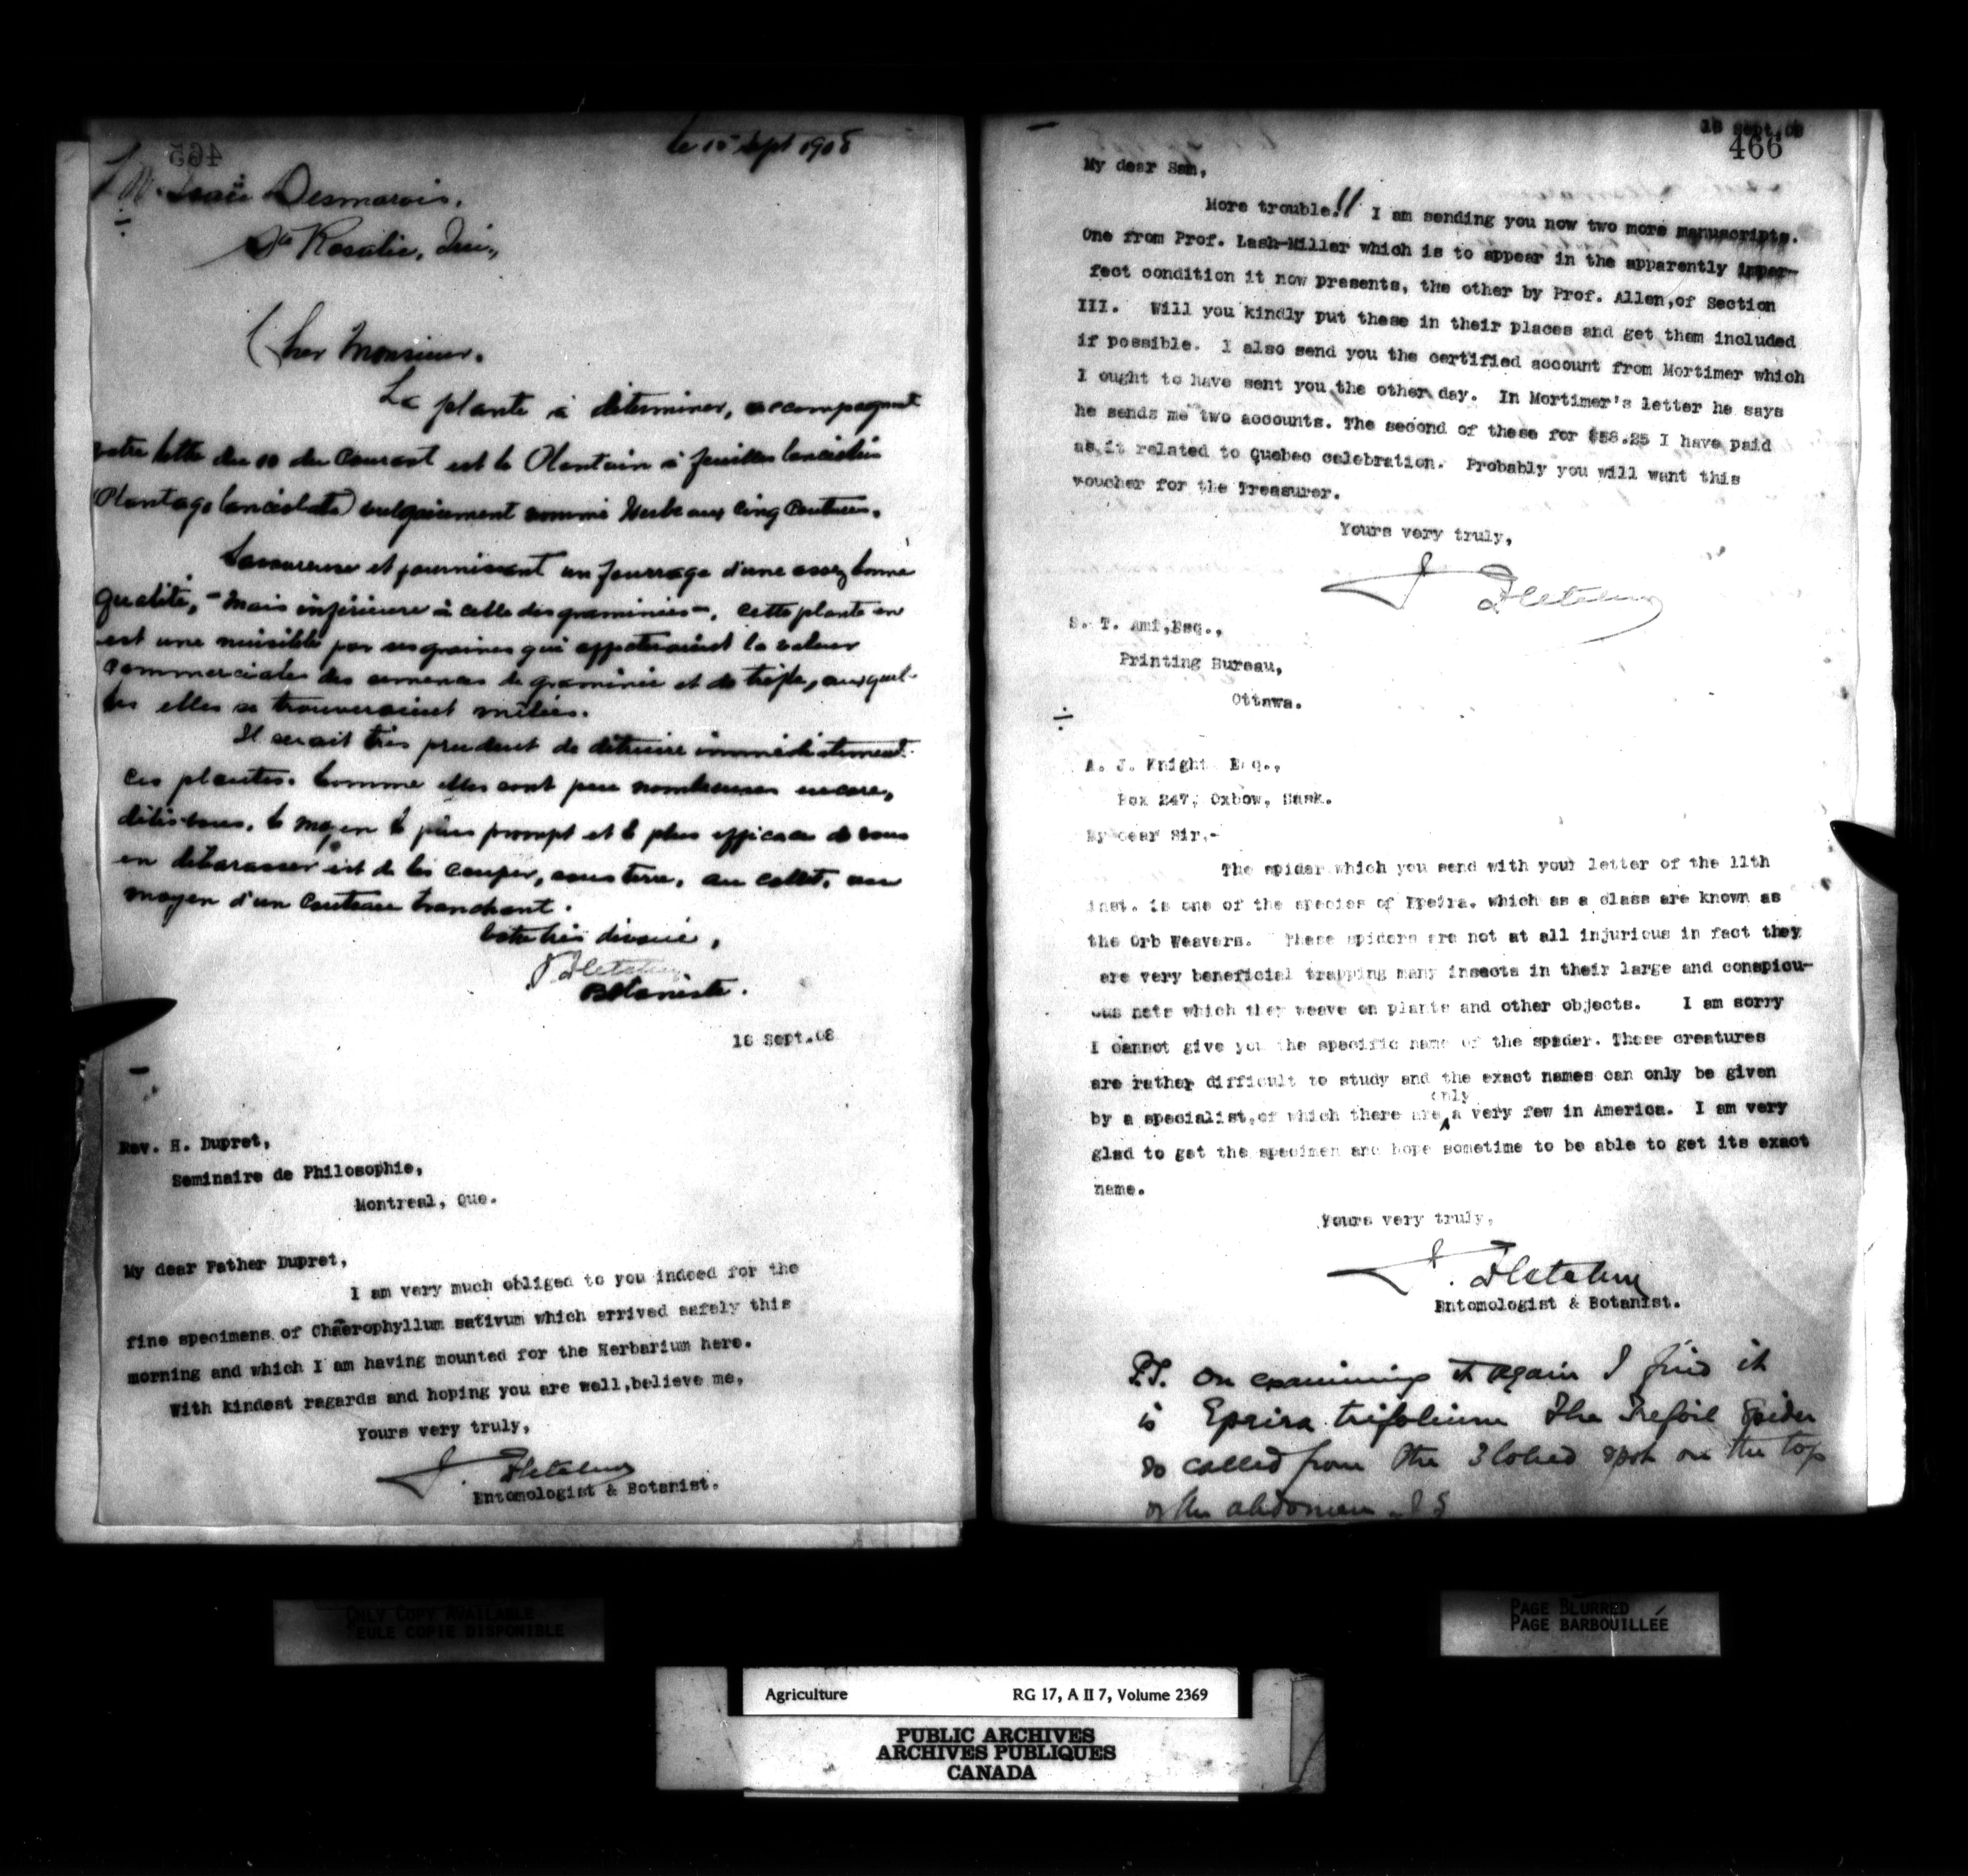 465
le 15 Sept 1908
M. Isaïe Desmarais,
Ste Rosalie, Qué.,
Cher Monsieur.
La plante à déterminer, accompagnant
votre lettre du 10 du courant est le Plantain à feuilles lancéolées
(Plantago lanceolata) vulgairement nommé Herbe aux Cinq Coutures.
Savoureuse et fournissant un fourrage d'une assez bonne
qualité, - mais inférieure à celle des graminées -, cette plante en
est une nuisible par ses graines qui
commerciales des semences de graminées et de trèfle, auxquel-
les elles se trouveraient mêlées.
Il serait très prudent de détruire immédiatement
ces plantes. Comme elles sont peu nombreuses encore,
dites-vous, le moyen le plus prompt et le plus efficace de vous
en débarasser est de les couper, sous terre, au collet, au
moyen d'un couteau tranchant.
Votre très dévoué,
J. Fletcher
Botaniste.
18 Sept.08
Rev. H. Dupret,
Seminaire de Philosophie,
Montreal, Que.
My dear Father Dupret,
I am very much obliged to you indeed for the
fine specimens of Chaerophyllum sativum which arrived safely this
morning and which I am having mounted for the Herbarium here.
With kindest regards and hoping you are well,believe me,
Yours very truly,
J. Fletcher
Entomologist & Botanist.
18 Sept.08
466
My dear Sam,
More trouble!! I am sending you now two more manuscripts.
One from Prof. Lash-Miller which is to appear in the apparently imper-
fect condition it now presents, the other by Prof. Allen,of Section
III. Will you kindly put these in their places and get them included
if possible. I also send you the certified account from Mortimer which
I ought to have sent you the other day. In Mortimer's letter he says
he sends me two accounts. The second of these for $58.25 I have paid
as it related to Quebec celebration. Probably you will want this
voucher for the Treasurer.
Yours very truly,
J. Fletcher
S. T. Ami,Esq.,
Printing Bureau,
Ottawa.
A. J. Knight Esq.,
Box 247, Oxbow, Sask.
My dear Sir,-
The spider which you send with your letter of the 11th
inst. is one of the species of Epeira, which as a class are known as
the Orb Weavers. These spiders are not at all injurious in fact they
are very beneficial trapping many insects in their large and conspicu-
ous nets which they weave on plants and other objects. I am sorry
I cannot give you the specific name of the spider. These creatures
are rather difficult to study and the exact names can only be given
only
by a specialist,of which there are a very few in America. I am very
glad to get the specimen and hope sometime to be able to get its exact
name.
Yours very truly,
J. Fletcher
Entomologist & Botanist.
P.S. On examining it again I find it
is Epeira trifolium The Trefoil Spider
so called from the 3 lobed spot on the top
of the abdomen
ONLY COPY AVAILABLE
SEULE COPIE DISPONIBLE
PAGE BLURRED
PAGE BARBOUILLÉE
Agriculture RG 17, A II 7, Volume 2369
PUBLIC ARCHIVES
ARCHIVES PUBLIQUES
CANADA